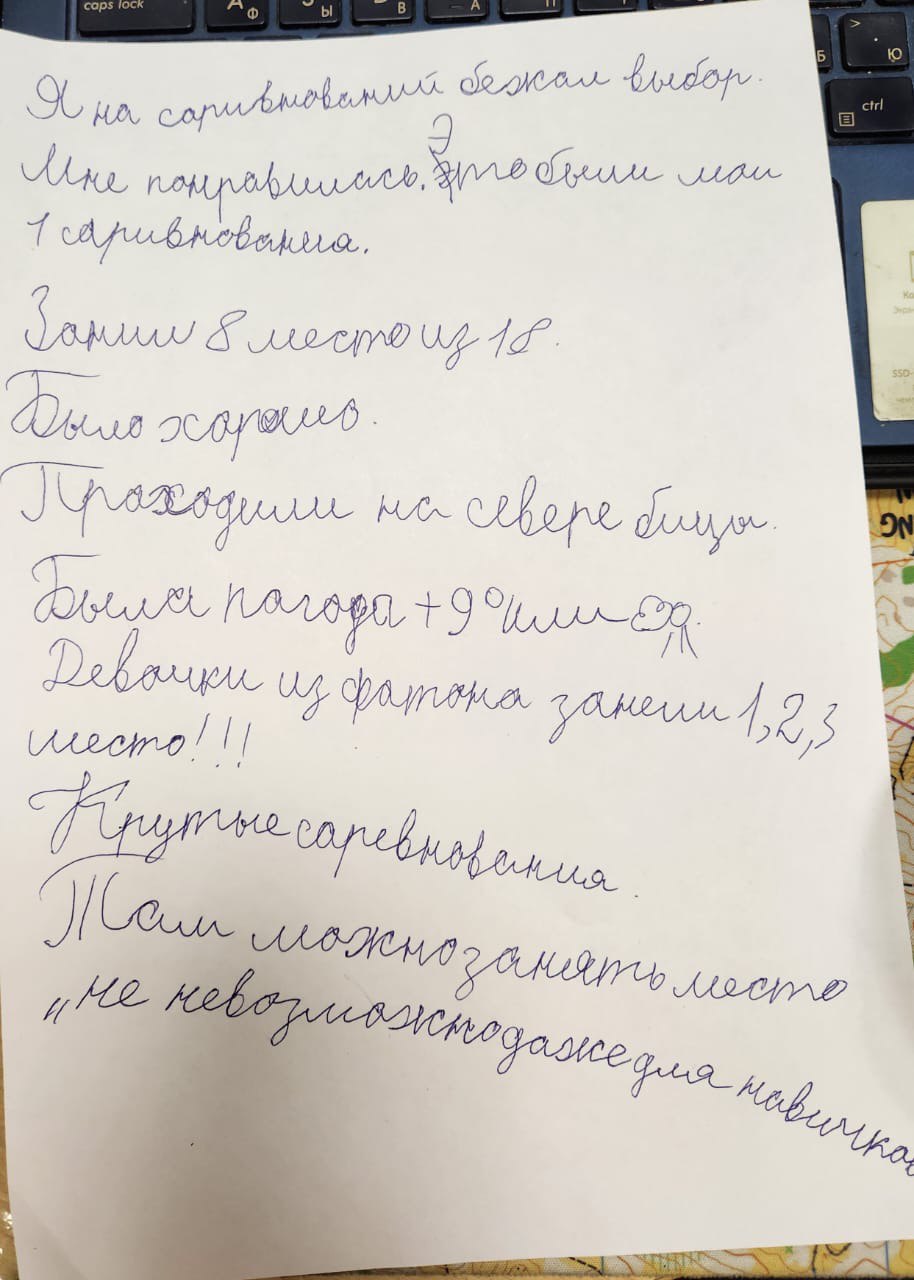 caps lock
А Ф
Ы
В
А
П
Б
Ю
ctrl
Я на саривнований бежал выбор.
Мне понравилась. Это были мои
1 саривнования.
Занил 8 место из 18.
Было хорошо.
Проходили на севере бицы.
Была погода +9° или
Девочки из фатона занели 1,2,3
место!!!
Крутые соревнования.
Там можно занять место
„не невозможно даже для навичков
SSD-